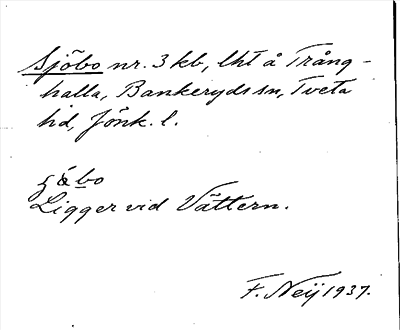 Sjöbo nr. 3 kb, lht å Trång-
halla, Bankeryds sn, Tveta
hd, Jönk. l.
Ligger vid Vättern.
F. Neij 1937.